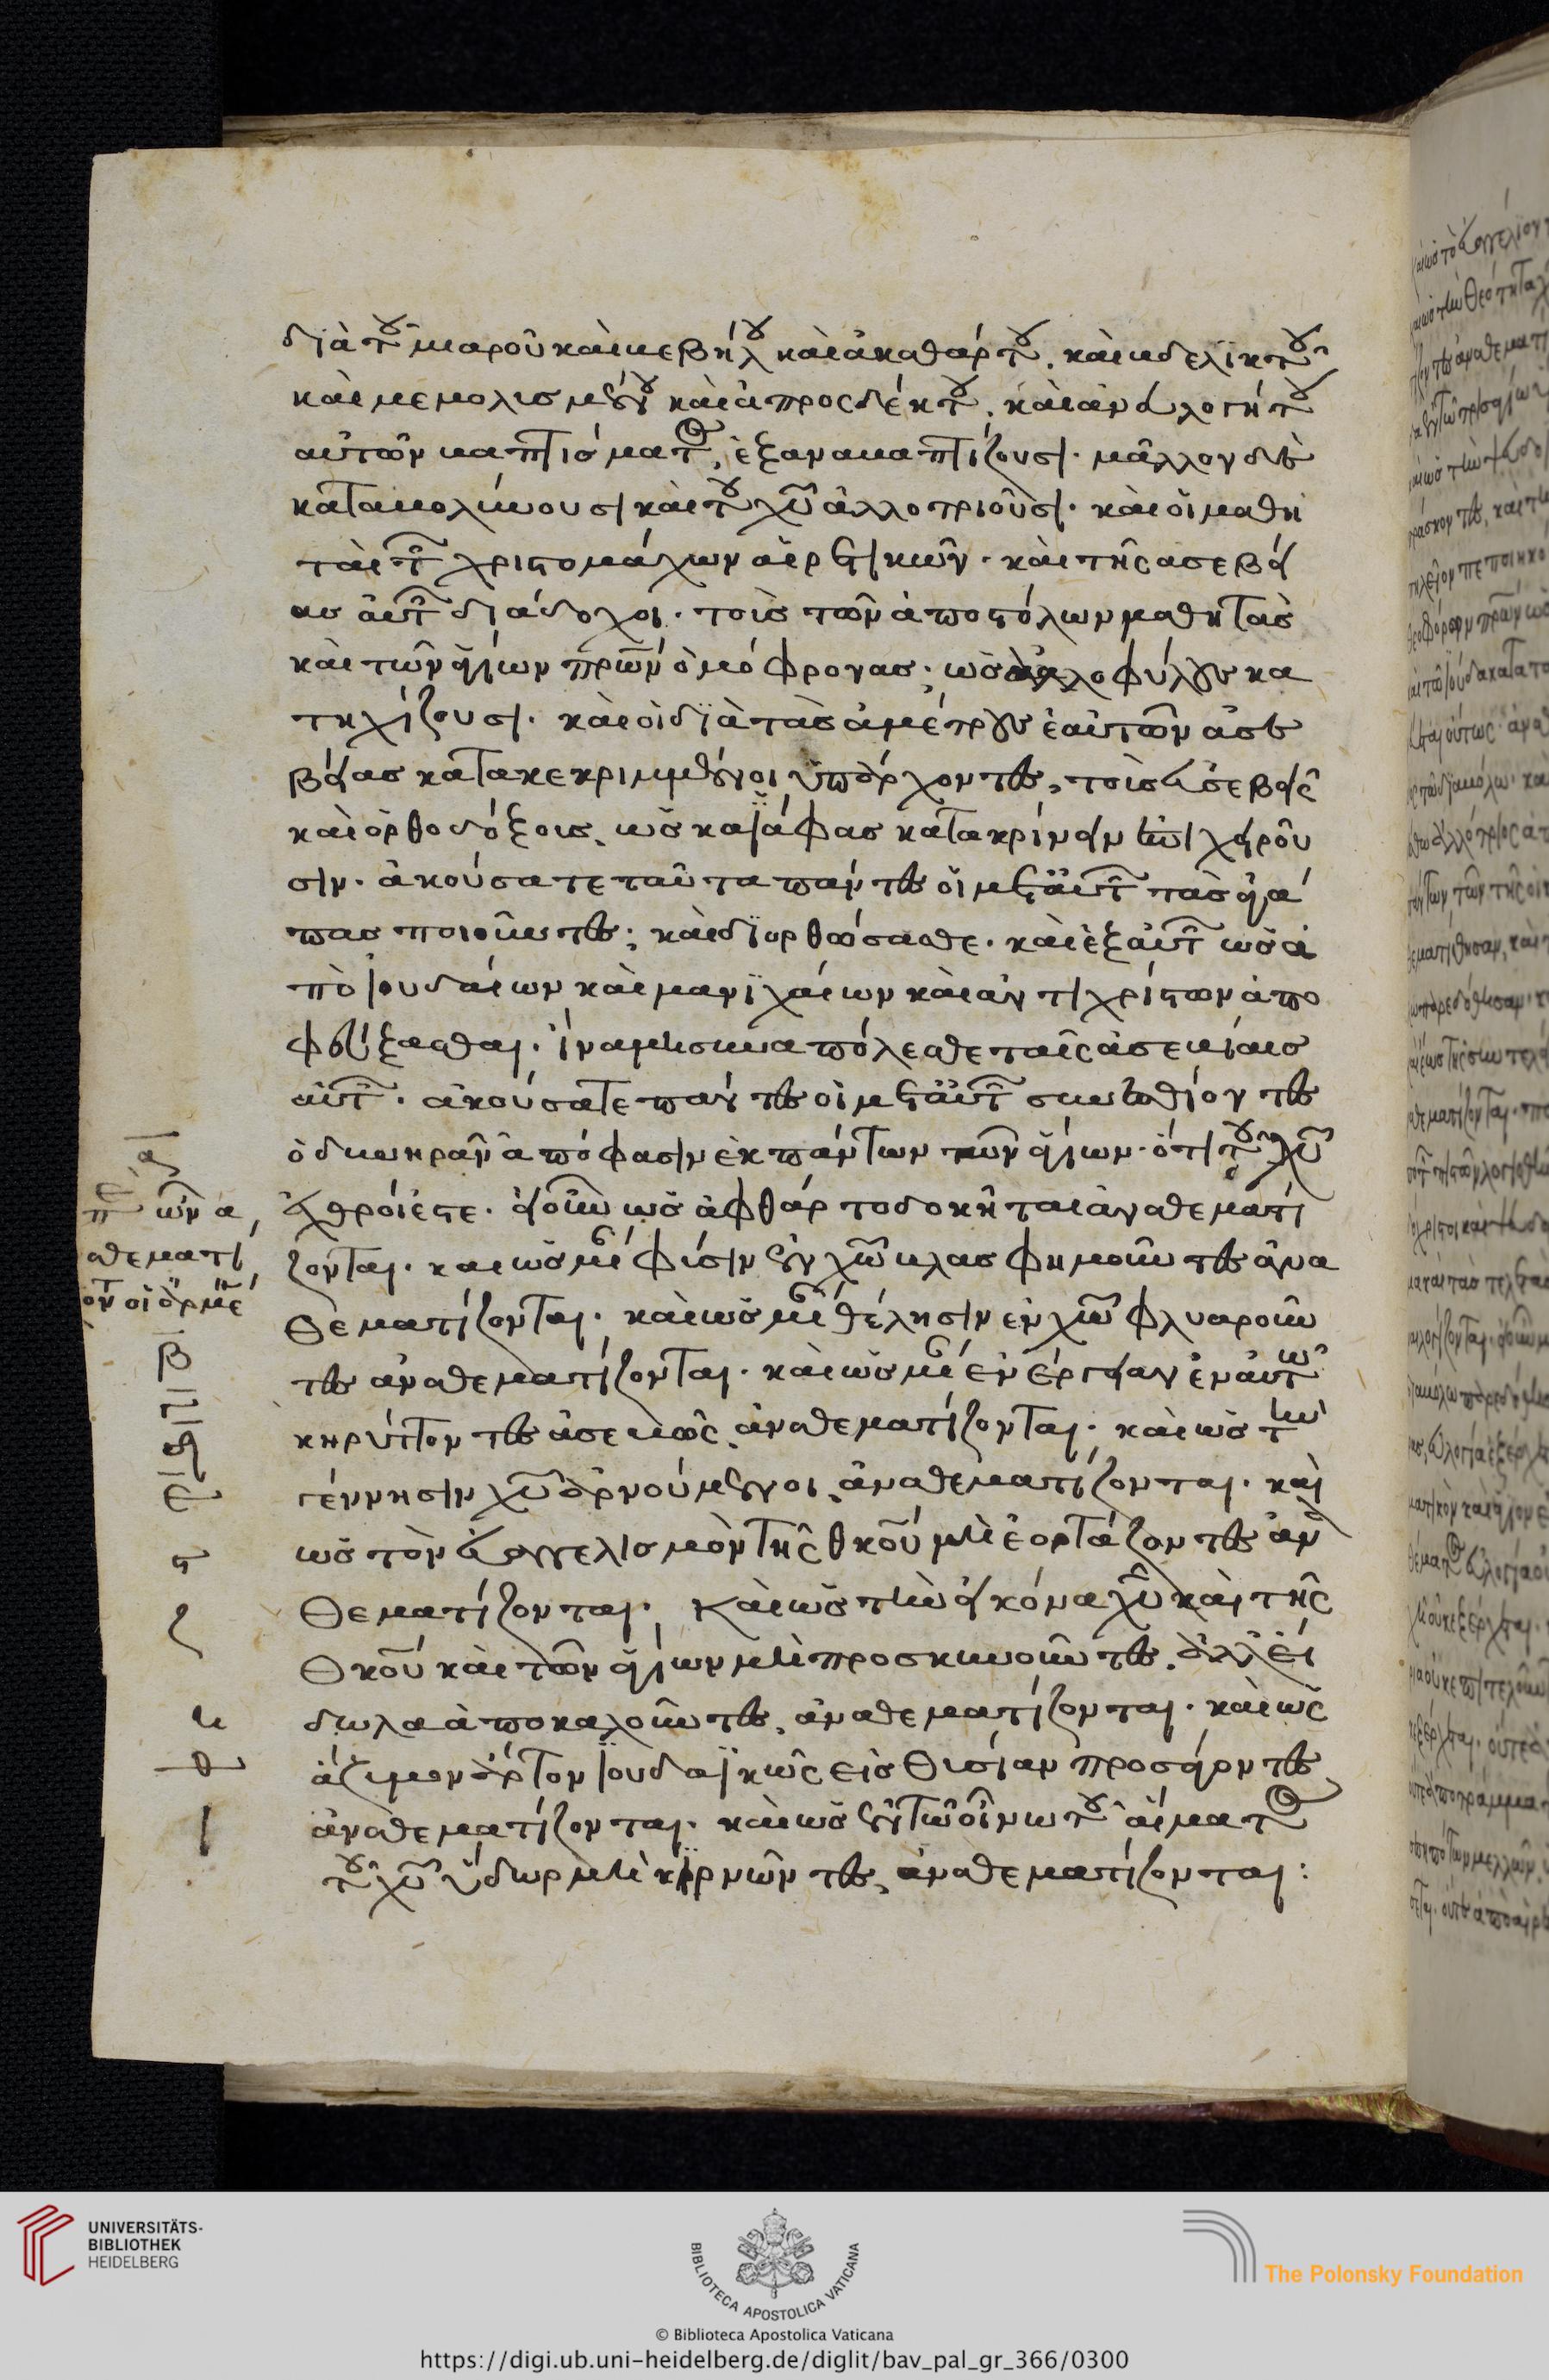 διὰ τοῦ μιαροῦ καὶ βεβήλου καὶ ἀκαθάρτου. καὶ βδελικτοῦ
καὶ μεμολισμένου καὶ ἀπροςδέκτου. καὶ ἀνευλογήτου
αὐτῶν βαπτίσματος, ἐξαναβαπτίζουσι. μᾶλλον δὲ
καταμολύνουσι καὶ τοῦ χῦ ἀλλοτριοῦσι. καὶ οἱ μαθη
ταὶ τῶν χριστομάχων αἱρετικῶν. καὶ τῆς ασεβεί
ας αὐτῶν διάδοχοι. τοὺς τῶν ἀποστόλων μαθητὰς
καὶ τῶν ἁγίων πρῶν ὁμόφρονας. ὡς ἀλλοφύλους κα
τηχίζουσι. καὶ οἱ διὰ τὰς ἀμέτρους ἑαυτῶν ἀσε
βείας κατακεκριμμένοι ὑπάρχοντες, τοὺς εὐσεβεῖς
καὶ ὀρθοδόξους, ὡς καϊάφας κατακρίνειν ἐπιχειροῦ
σιν. ἀκούσατε ταῦτα πάντες οἱ μετ' αὐτῶν τὰς ἀγά
πας ποιοῦντες. καὶ διορθώσασθε. καὶ ἐξ αὐτῶν ὡς ἀ
πὸ ἰουδαίων καὶ μανιχαίων καὶ ἀντιχρίστων ἀπο
φεύξασθαι. ἵνα μὴ συναπόλεσθε ταῖς ἀσεβίαις
αὐτῶν. ἀκούσατε πάντες οἱ μετ' αὐτῶν συνεσθίοντες
ὀδυνηρὰν ἀπόφασιν ἐκ πάντων τῶν ἁγίων. ὅτι τοῦ χῦ
ἐχθροί ἐστε. εἰ οὖν ὡς ἀφθαρτοδοκῆται ἀναθεματί
ζονται. καὶ ὡς μίαν φύσιν ἐν χῶ βλασφημοῦντες ἀνα
θεματίζονται. καὶ ὡς μίαν θέλησιν ἐν χῶ φλυαροῦν
τες ἀναθεματίζονται. καὶ ὡς μίαν ἐνέργειαν ἐν αὐτῶ
κηρύττοντες ἀσεβῶς, ἀναθεματίζονται. καὶ ὡς τὴν
γέννησιν χῦ ἀρνούμενοι, ἀναθεματίζονται. καὶ
ὡς τὸν εὐαγγελισμὸν τῆς θκοῦ μὴ ἑορτάζοντες ἀνα
θεματίζονται. καὶ ὡς τὴν εἰκόνα χῦ καὶ τῆς
θκοῦ καὶ τῶν ἁγίων μὴ προσκυνοῦντες, ἀλλ' εἴ
δωλα ἀποκαλοῦντες, ἀναθεματίζονται. καὶ ὡς
ἄζιμον ἄρτον ἰουδαϊκῶς εἰς θυσίαν προσφέροντες
ἀναθεματίζονται. καὶ ὡς ἐν τῶ οἴνω τοῦ αἵματος
τοῦ χῦ ὕδωρ μὴ κιρνῶντες, ἀναθεματίζονται:
αθεματί
UNIVERSITÄTS-
BIBLIOTHEK
HEIDELBERG
BIBLIOTECA APOSTOLICA VATICANA
The Polonsky Foundation
© Biblioteca Apostolica Vaticana
https://digi.ub.uni-heidelberg.de/diglit/bav_pal_gr_366/0300